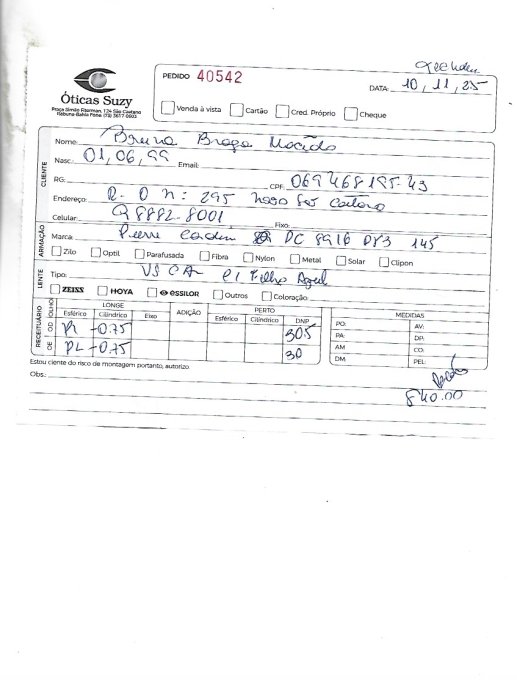 PEDIDO 40542
DATA: 10, 11, 25
Óticas Suzy
Praça Simão Fiterman, 124 São Caetano
Itabuna-Bahia Fone: (73) 3617-0003
Venda à vista Cartão Cred. Próprio Cheque
CLIENTE
Nome: Bruna Braga Macêdo
Nasc.: 01, 06, 99 Email:
RG: CPF: 069 468 195-43
Endereço: R. O n: 295
Celular: 98882-8001 Fixo:
ARMAÇÃO
Marca: Pierre Cardin DC 8916 145
Zilo Optil Parafusada Fibra Nylon Metal Solar Clipon
LENTE
Tipo: VS C AR Filtro Azul
ZEISS HOYA essilor Outros Coloração:
RECEITUÁRIO
OLHO LONGE ADIÇÃO PERTO DNP MEDIDAS
Esférico Cilíndrico Eixo Esférico Cilíndrico
OD PL -0.75 30.5
OE PL -0.75 30
PO: AV:
PA: DP:
AM CO:
DM PEL:
Estou ciente do risco de montagem portanto, autorizo.
Obs.:
840.00